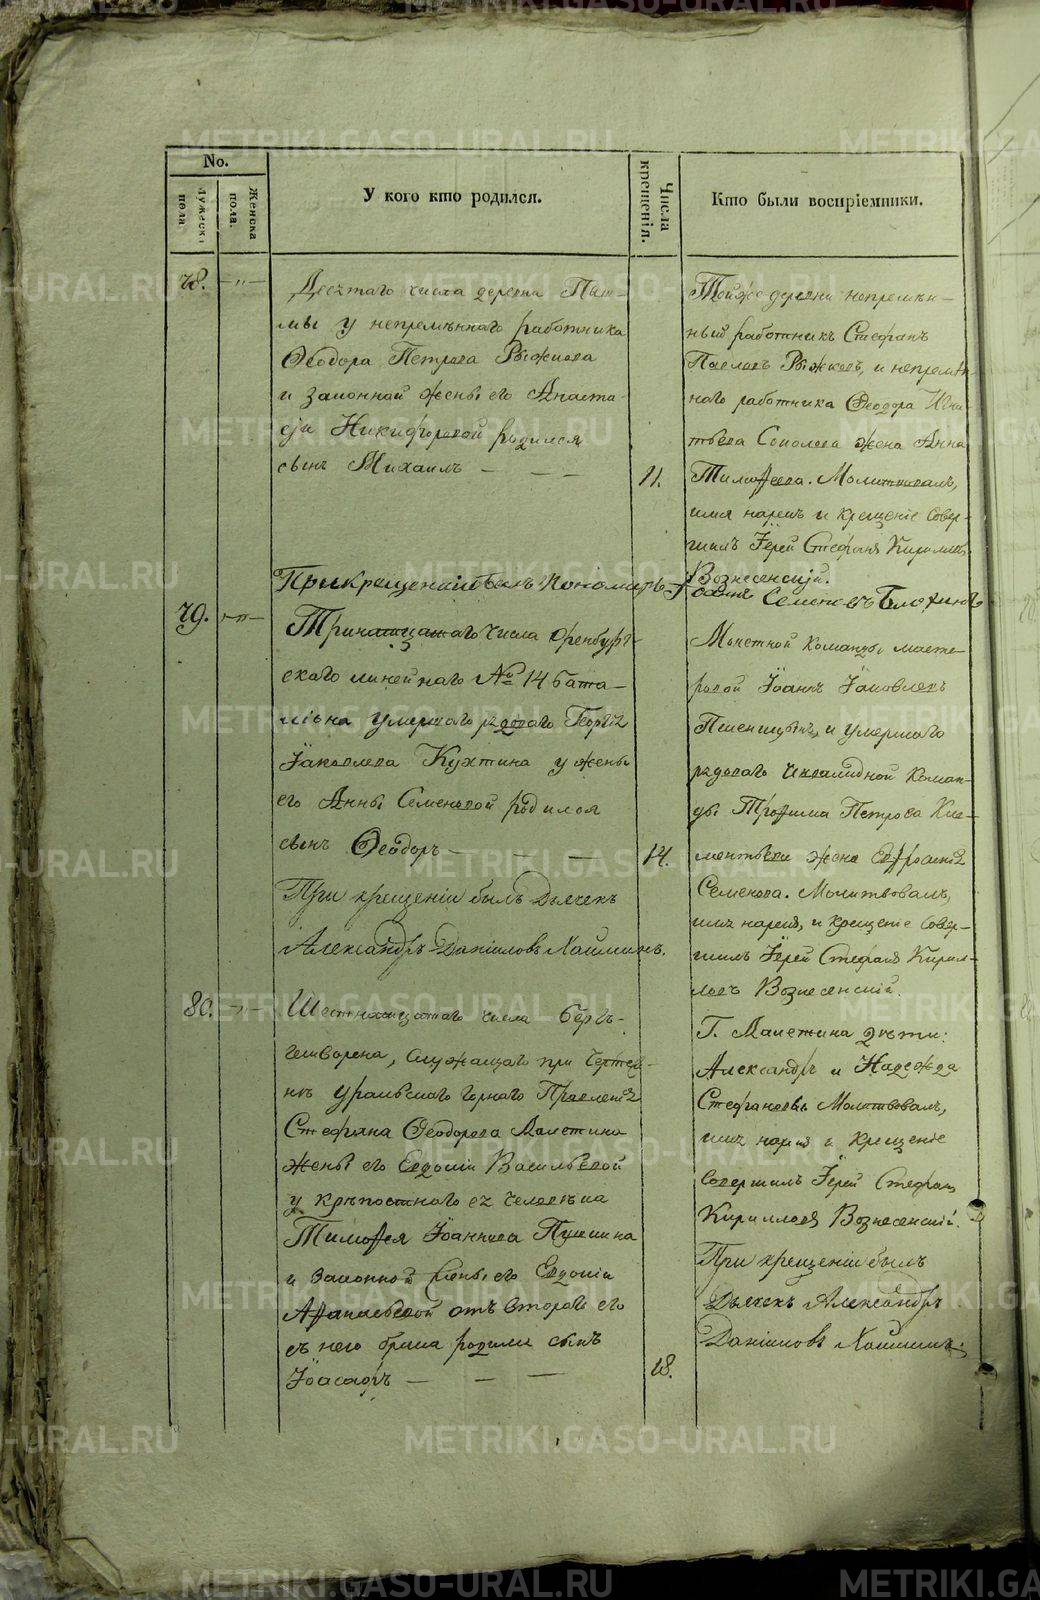 METRIKI.GASO-URAL.RU
No.
Мужеска пола
Женска пола.
У кого кто родился.
Числа крещенія.
Кто были воспріемники.
78.
Десятаго числа деревни
у непремѣннаго работника
Ѳеодора Петрова Рыжкова
и законной жены его Анаста-
сіи Никифоровой родился
сынъ Михаилъ
11.
Тойже деревни непремѣн-
ный работникъ Стефанъ
Павловъ Рыжковъ, и непремѣн-
наго работника Ѳеодора Игна-
тьева Соколова жена Анна
Тимоѳеева. Молитвовалъ,
имя нарекъ и крещеніе совер-
шилъ Іерей Стефанъ Кирилловъ
Вознесенскій.
При крещеніи былъ Пономарь
Семеновъ
79.
Тринатцатаго числа Оренбург-
скаго линейнаго № 14 бата-
ліона умершаго рядоваго Георгія
Іаковлева Кухтина у жены
его Анны Семеновой родился
сынъ Ѳеодоръ
14.
При крещеніи былъ Дьячекъ
Александръ Даніиловъ Хаминъ.
Монетной команды масте-
ровой Іоаннъ Іаковлевъ
Пшеницынъ, и умершаго
рядоваго Инвалидной Коман-
ды Трофима Петрова Кле-
ментьева жена Евфросинія
Семенова. Молитвовалъ,
имя нарекъ, и крещеніе совер-
шилъ Іерей Стефанъ Кирил-
ловъ Вознесенскій.
80.
Шестнатцатаго числа Бергъ-
гешворена, служащаго при Чертеж-
нѣ Уральскаго Горнаго Правленія
Стефана Ѳеодорова
жены его Евдокіи Васильевой
у крѣпостнаго ея человѣка
Тимоѳея Іоаннова
и законной жены его Евдокіи
Аѳанасьевой отъ втораго его
съ нею брака родился сынъ
Іоасафъ
18.
Г. дѣти:
Александръ и Надежда
Стефановы. Молитвовалъ,
имя нарекъ и крещеніе
совершилъ Іерей Стефанъ
Кирилловъ Вознесенскій.
При крещеніи былъ
Дьячекъ Александръ
Даніиловъ Хаминъ.